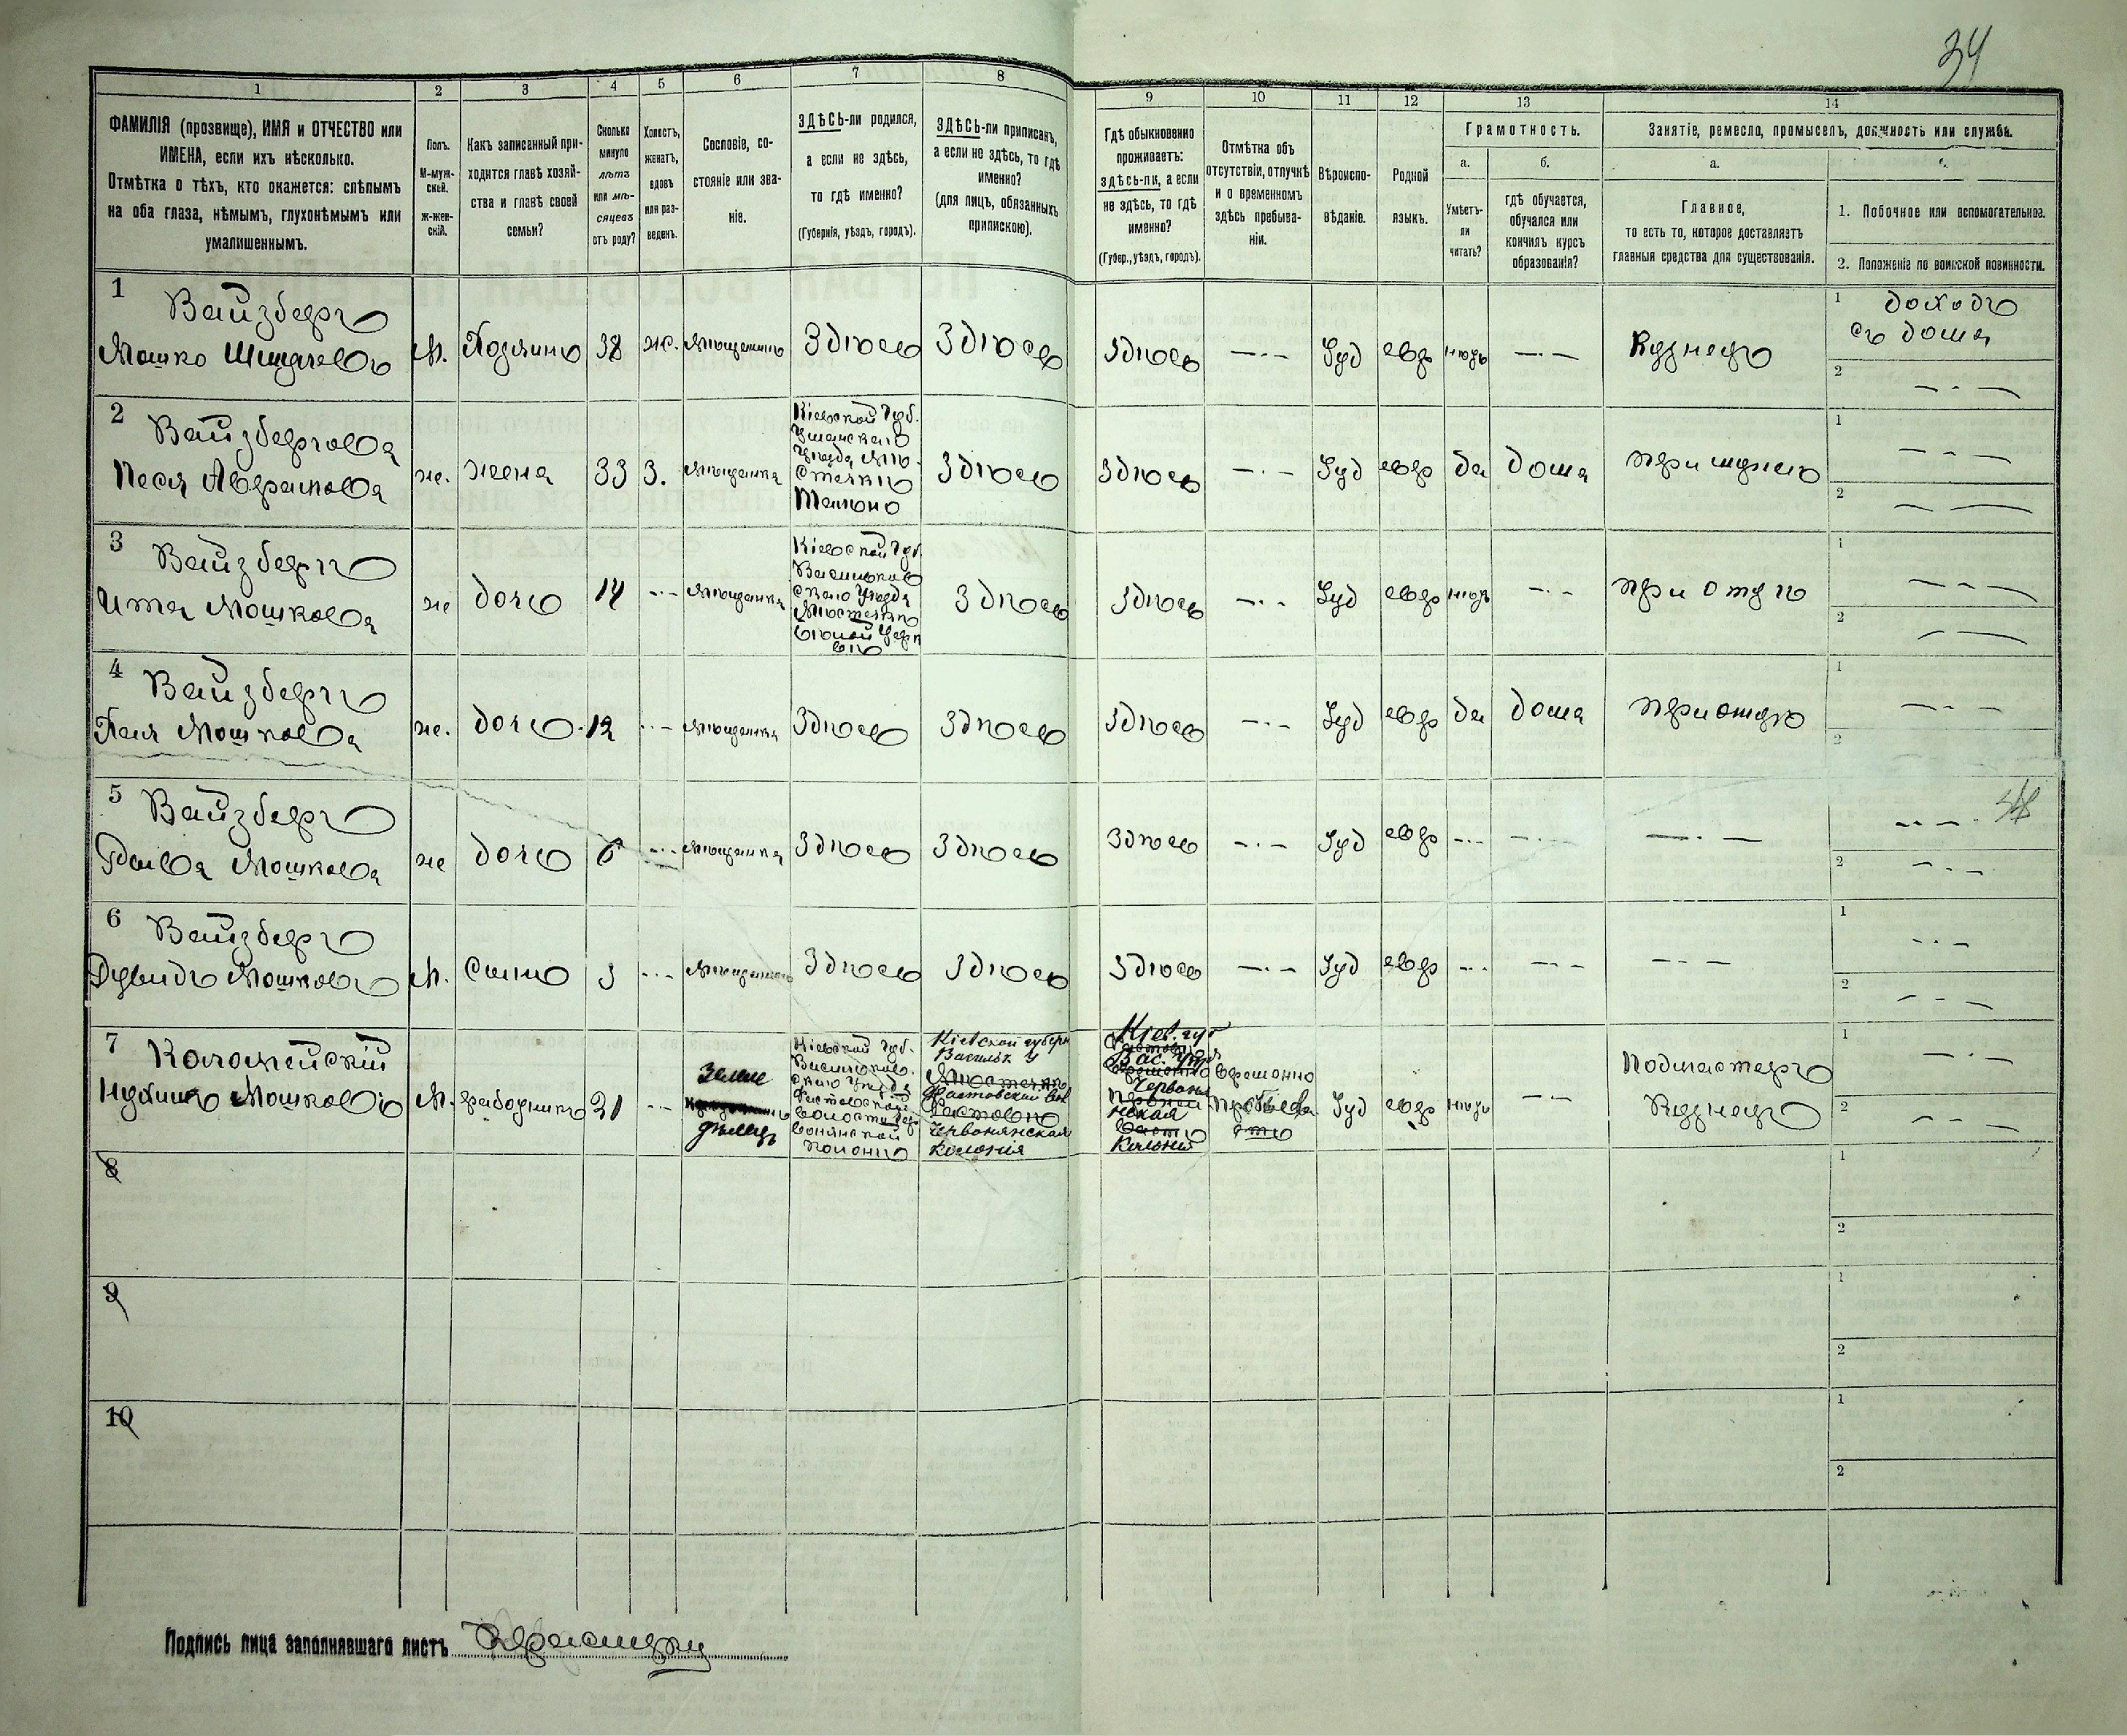 34
1 2 3 4 5 6 7 8 9 10 11 12 13 14
ФАМИЛІЯ (прозвище), ИМЯ и ОТЧЕСТВО или
ИМЕНА, если ихъ нѣсколько.
Отмѣтка о тѣхъ, кто окажется: слѣпымъ
на оба глаза, нѣмымъ, глухонѣмымъ или
умалишеннымъ.
Полъ.
М-муж-
ской.
ж-жен-
скій.
Какъ записанный при-
ходится главѣ хозяй-
ства и главѣ своей
семьи?
Сколько
минуло
лѣтъ
или мѣ-
сяцевъ
отъ роду?
Холостъ,
женатъ,
вдовъ
или раз-
веденъ.
Сословіе, со-
стояніе или зва-
ніе.
ЗДѢСЬ-ли родился,
а если не здѣсь,
то гдѣ именно?
(Губернія, уѣздъ, городъ).
ЗДѢСЬ-ли приписанъ,
а если не здѣсь, то гдѣ
именно?
(для лицъ, обязанныхъ
припискою).
Гдѣ обыкновенно
проживаетъ:
здѣсь-ли, а если
не здѣсь, то гдѣ
именно?
(Губер., уѣздъ, городъ).
Отмѣтка объ
отсутствіи, отлучкѣ
и о временномъ
здѣсь пребыва-
ніи.
Вѣроиспо-
вѣданіе.
Родной
языкъ.
Грамотность.
а.
Умѣетъ-
ли
читать?
б.
гдѣ обучается,
обучался или
кончилъ курсъ
образованія?
Занятіе, ремесло, промыселъ, должность или служба.
а.
Главное,
то есть то, которое доставляетъ
главныя средства для существованія.
1. Побочное или вспомогательное.
2. Положеніе по воинской повинности.
1 Вайзбергъ
Мошко
М. Хозяинъ 38 же. мѣщанинъ Здѣсь Здѣсь Здѣсь —·— Іуд евр нѣтъ —·— Кузнецъ
1 доходъ
съ дома
2 —·—
2 Вайзбергова
Песя Аврамова
же. жена 33 З. мѣщанка
Кіевской Губ.
Уманскаго
Уѣзда Мѣ-
стечко
Тально
Здѣсь Здѣсь —·— Іуд евр да дома при мужѣ
1 —·—
2 — —
3 Вайзбергъ
Ита Мошкова
же дочь 14 -·- мѣщанка
Кіевской Губ.
Васильков
скаго Уѣзда
Мѣстечко
Бѣлой Церк
вѣ
Здѣсь Здѣсь —·— Іуд евр нѣтъ -·- при отцѣ
1 —·—
2 — —
4 Вайзбергъ
Хая Мошкова
же. дочь 12 -·- мѣщанка Здѣсь Здѣсь Здѣсь —·— Іуд евр да дома при отцѣ
1 —·—
2
5 Вайзбергъ
Мошкова
же дочь 6 -·- мѣщанка Здѣсь Здѣсь Здѣсь —·— Іуд евр -·- -·- —·—
1 —·—
2 -·-
6 Вайзбергъ
Дувидъ Мошковъ
М. Сынъ 3 -·- мѣщанинъ Здѣсь Здѣсь Здѣсь —·— Іуд евр -·- —·- —·—
1 -·-
2 -·-
7
Мошковъ
М. работникъ 21 -·-
Земле
дѣлецъ
Кіевской Губ.
Васильков.
скаго Уѣзда
Фастовской
Волости Чер
вонянской
колоніи
Кіевской губерн
Васильк у
Мѣстечко
Фастовской вол
Фастовъ
Червонянская
колонія
Кіев. губ
Вас. Уѣзд
Червоня
нская
Колонія
временно
пребыва
етъ
Іуд евр нѣтъ -·-
Подмастеръ
Кузнецъ
1 —·—
2 -·-
8
1
2
9
1
2
10
1
2
Подпись лица заполнявшаго листъ